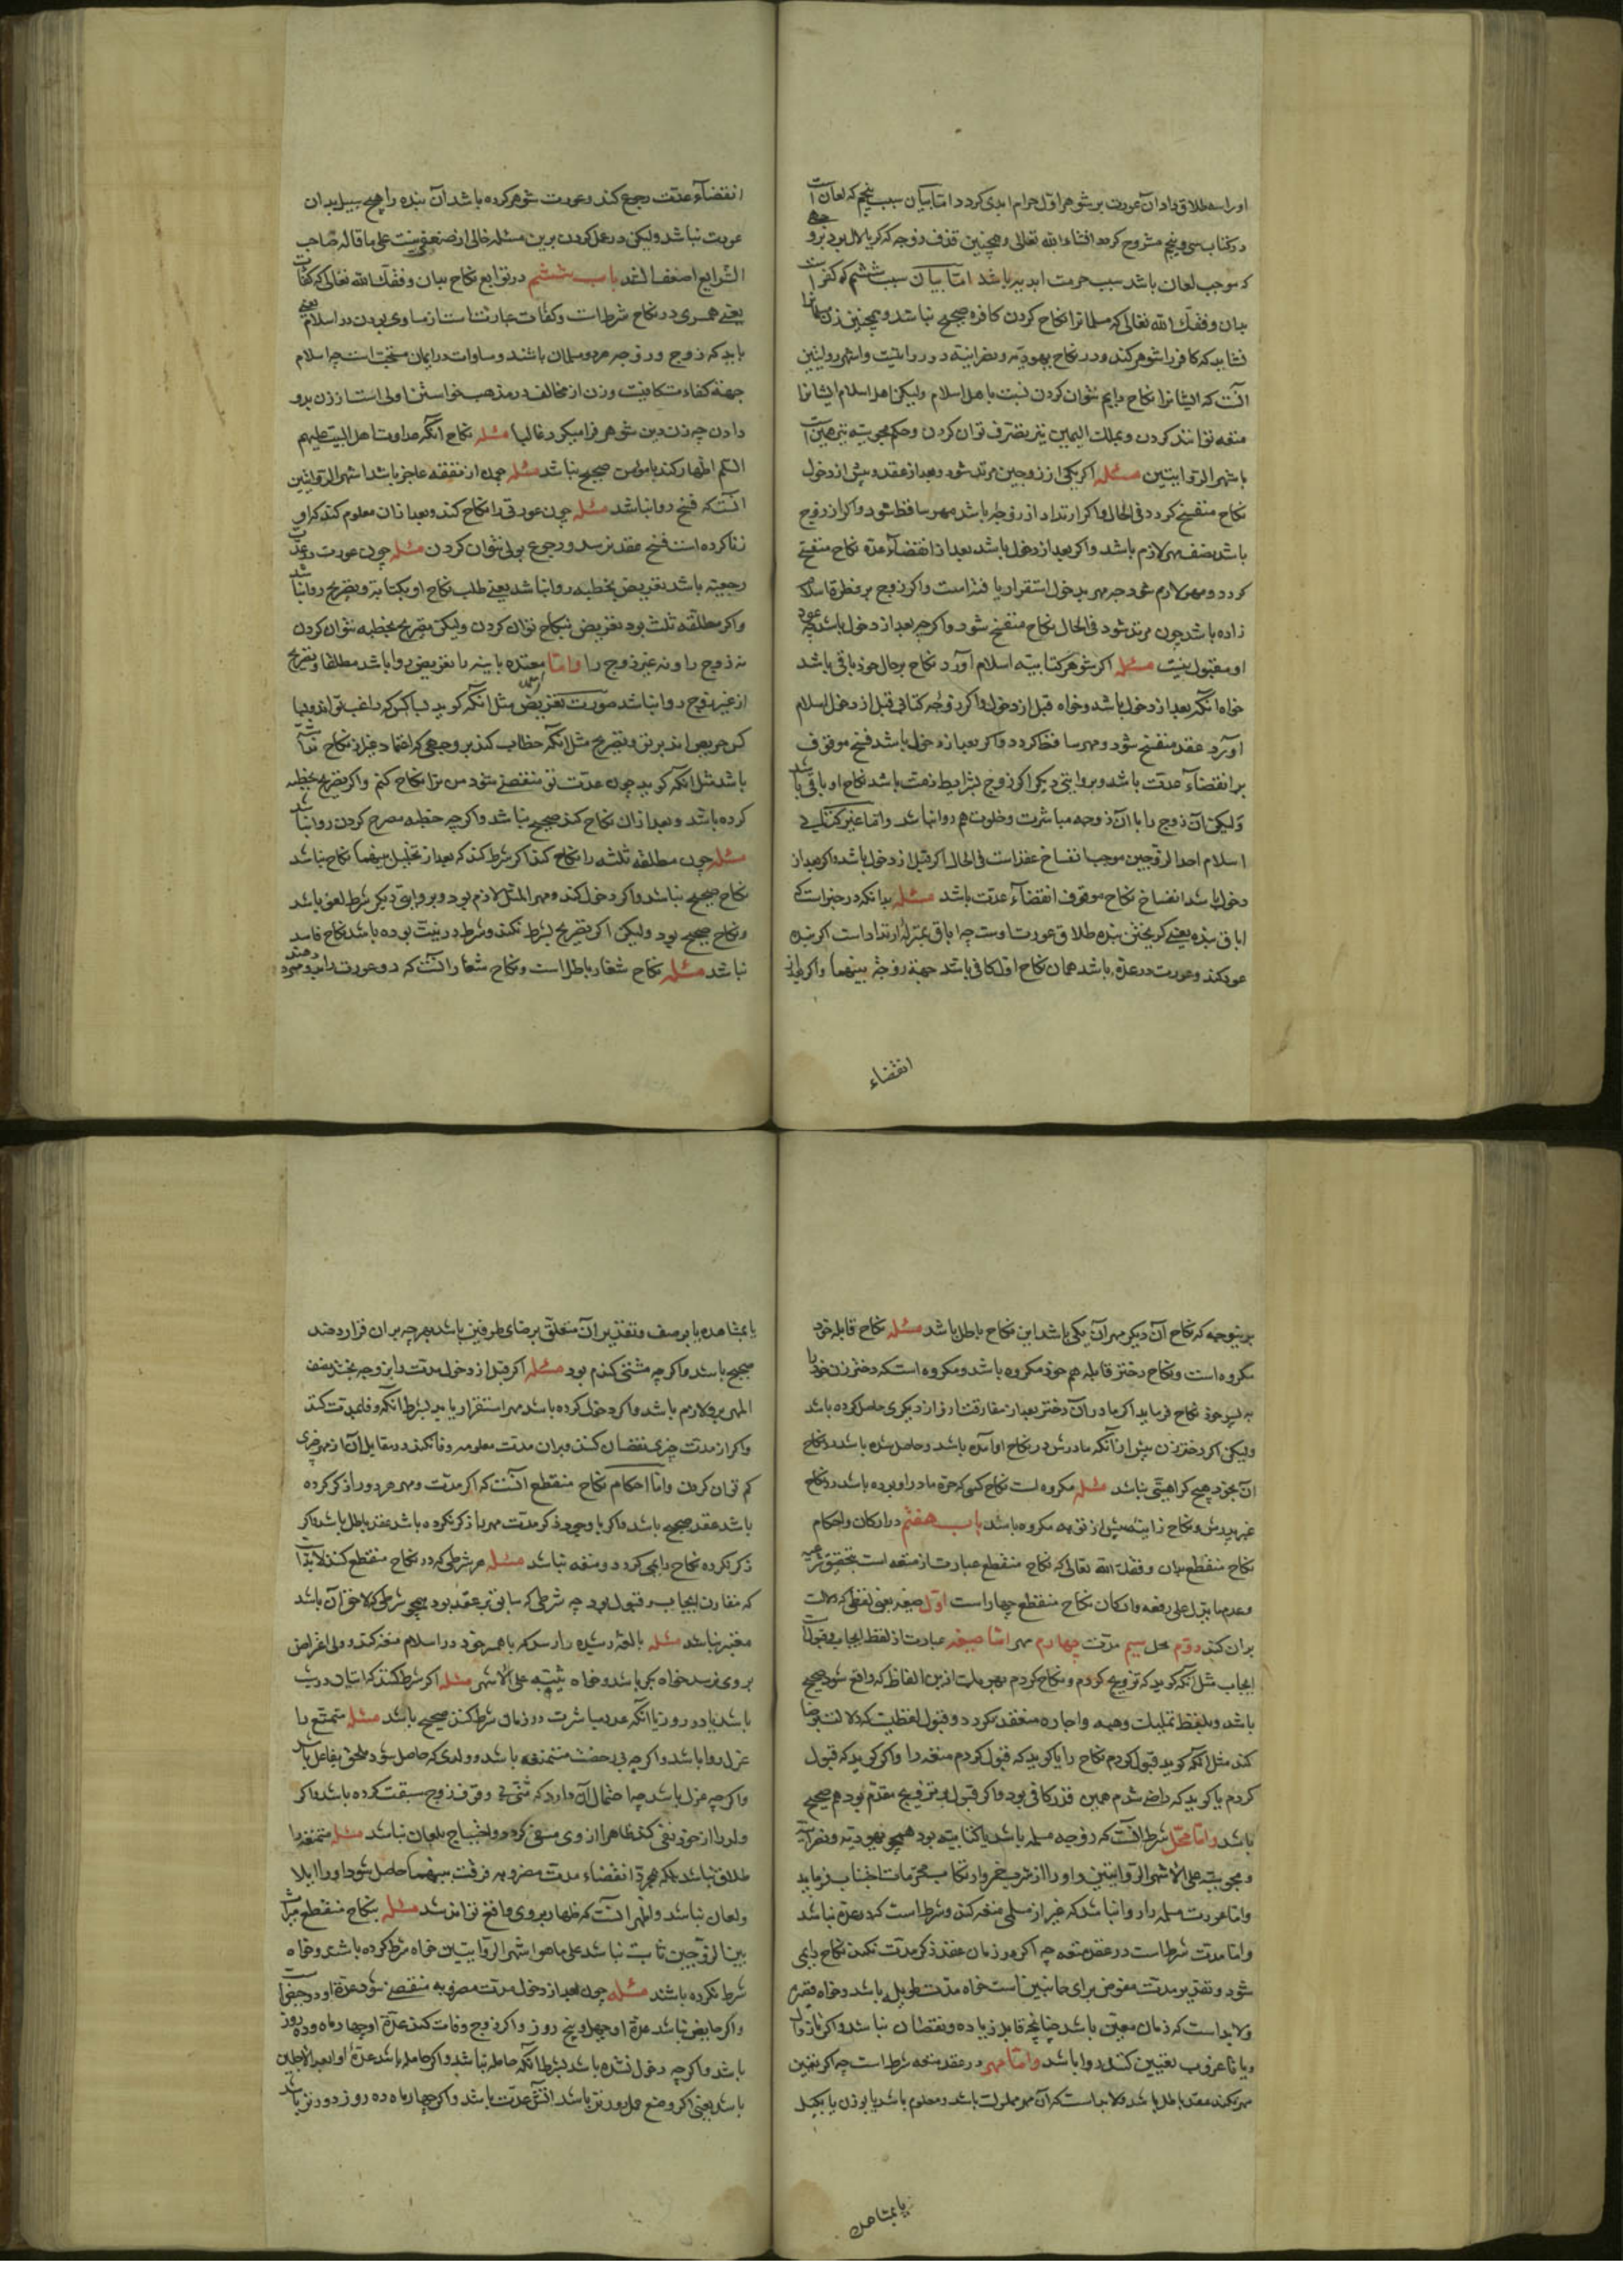 اورا سه طلاق داد آن عورت بر شوهر اول حرام ابدی کردد اما بیان سبب پنجم که لعان است
در کتاب سی و پنجم مشروح کردد انشاء الله تعالی وهمچنین قذف زوجه که کر یا لال بود بروجهی
که موجب لعان باشد سبب حرمت ابدیه باشد اما بیان سبب ششم که کفر است
بدان وفقک الله تعالی که مسلمانرا نکاح کردن کافره صحیح نباشد وهمچنین زن مسلمانرا
نشاید که کافر را شوهر کند ودر نکاح یهودیه ونصرانیه دو روایتست واشهر روایتین
آنست که ایشانرا نکاح دایم نتوان کردن نسبت باهل اسلام ولیکن اهل اسلام ایشانرا
متعه توانند کردن وبملک الیمین نیز تصرف توان کردن وحکم مجوسیه نیز همین است
باشهر الروایتین مسئله اکر یکی از زوجین مرتد شود وبعد از عقد وپیش از دخول
نکاح منفسخ کردد فی الحال واکر ارتداد از زوجه باشد مهر ساقط شود واکر از زوج
باشد نصف مهر لازم باشد واکر بعد از دخول باشد بعد از انقضاء عده نکاح منفسخ
کردد ومهر لازم شود چه مهر بدخول استقرار یافته است واکر زوج بر فطرة اسلام
زاده باشد چون مرتد شود فی الحال نکاح منفسخ شود واکر چه بعد از دخول باشد چه عود
او مقبول نیست مسئله اکر شوهر کتابیه اسلام آورد نکاح بر حال خود باقی باشد
خواه انکه بعد از دخول باشد وخواه قبل از دخول واکر زوجه کتابی قبل از دخول اسلام
آورد عقد منفسخ شود ومهر ساقط کردد واکر بعد از دخول باشد فسخ موقوف
بر انقضاء عدت باشد وبروایتی دیکر اکر زوج بشرایط ذمت باشد نکاح او باقی باشد
ولیکن آن زوج را با آن زوجه مباشرت وخلوت هم روا نباشد واما غیر کتابی
اسلام احد الزوجین موجب انفساخ عقد است فی الحال اکر قبل از دخول باشد واکر بعد از
دخول باشد انفساخ نکاح موقوف انقضاء عدت باشد مسئله بدانکه در خبر است که
اباق بنده یعنی کریختن بنده طلاق عورت اوست چه اباق بمنزلهٔ ارتداد است اکر بنده
عود کند وعورت در عده باشد همان نکاح اول کافی باشد جهة زوجیه بینهما واکر بعد از
انقضاء
انقضاء عدت رجوع کند وعورت شوهر کرده باشد آن بنده را هیچ سبیل بدان
عورت نباشد ولیکن در عمل کردن برین مسئله خالی از ضعفی نیست علی ما قاله صاحب
الشرایع اضعف السند باب ششم در توابع نکاح بدان وفقک الله تعالی که کفائت
یعنی همسری در نکاح شرطست وکفائت عبارتست از مساوی بودن در اسلام یعنی
باید که زوج وزوجه هر دو مسلمان باشند ومساوات در ایمان مستحب است چه اسلام
جهة کفاءت کافیست وزن از مخالف در مذهب خواستن اولی است از زن برو
دادن چه زن دین شوهر فرا میکیرد غالبا مسئله نکاح انکه عداوت اهل البیت علیهم
السلم اظهار کند با مؤمن صحیح نباشد مسئله چون از نفقه عاجز باشد اشهر الروایتین
آنست که فسخ روا نباشد مسئله چون عورتی را نکاح کند وبعد از ان معلوم کند که او
زنا کرده است فسخ عقد نرسد ورجوع بولی نتوان کردن مسئله چون عورت در عدت
رجعیه باشد تعریض بخطبه روا نباشد یعنی طلب نکاح او بکنایه وتصریح روا نباشد
واکر مطلقه ثلث بود تعریض بنکاح توان کردن ولیکن تصریح بخطبه نتوان کردن
نه زوج را ونه غیر زوج را واما معتده باینه را تعریض روا باشد مطلقا وتصریح
از غیر زوج روا نباشد صورت تعریض مثل انکه کوید بسا کس که راغب تو اند وبسا
کس حریص اند بر تو وتصریح مثل انکه خطاب کند بر وجهی که احتمال غیر از نکاح نداشته
باشد مثل انکه کوید چون عدت تو منقضی شود من ترا نکاح کنم واکر تصریح بخطبه
کرده باشد وبعد از ان نکاح کند صحیح باشد واکر چه خطبه مصرح کردن روا نباشد
مسئله چون مطلقه ثلثه را نکاح کند اکر شرط کند که بعد از تحلیل بینهما نکاح نباشد
نکاح صحیح نباشد واکر دخول کند ومهر المثل لازم بود وبروایتی دیکر شرط لغو باشد
ونکاح صحیح بود ولیکن اکر تصریح بشرط نکند وشرط در نیت بوده باشد نکاح فاسد
نباشد مسئله نکاح شغار باطل است ونکاح شغار آنست که دو عورت را بدو مرد دهند
بدینوجه که نکاح آن دیکر مهر آن یکی باشد این نکاح باطل باشد مسئله نکاح قابله خود
مکروه است ونکاح دختر قابله هم خود مکروه باشد ومکروه است که دختر زن خود را
به پسر خود نکاح فرماید اکر مادر آن دختر بعد از مفارقت از و از دیکری حاصل کرده باشد
ولیکن اکر دختر زن پیش از آنکه مادرش در نکاح او آمده باشد وحاصل شده باشد نکاح
آن بخود هیچ کراهیتی نباشد مسئله مکروه است نکاح کسی که ضره مادر او بوده باشد در نکاح
غیر پدرش ونکاح زانیه پیش از توبه مکروه باشد باب هفتم در ارکان واحکام
نکاح منقطع بدان وفقک الله تعالی که نکاح منقطع عبارت از متعه است بتحقیق شرعیه
وعدم ما یدل علی رفعه وارکان نکاح منقطع چهار است اول صیغه یعنی لفظی که دلالت
بران کند دوم محل سیم مدت چهارم مهر اما صیغه عبارت از لفظ ایجاب وقبول است
ایجاب مثل آنکه کوید که تزویج کردم ونکاح کردم بهر یک از این الفاظ که واقع شود صحیح
باشد وبلفظ تملیک وهبه واجاره منعقد نکردد وقبول لفظیست که دلالت بر رضا
کند مثل آنکه کوید قبول کردم نکاح را یا کوید که قبول کردم متعه را واکر کوید که قبول
کردم یا کوید که راضی شدم همین قدر کافی بود واکر قبول بر تزویج مقدم بود هم صحیح
باشد واما محل شرط آنست که زوجه مسلمه باشد یا کتابیه بود همچو یهودیه ونصرانیه
ومجوسیه علی الاشهر الروایتین واو را از شرب خمر وارتکاب محرمات اجتناب فرماید
واما عورت مسلمه را روا نباشد که غیر از مسلمی متعه کند وشرط است که در عده نباشد
واما مدت شرط است در عقد متعه چه اکر در زمان عقد ذکر مدت نکند نکاح دایمی
شود وتقدیر مدت مفوض برای جانبین است خواه مدت طویل باشد وخواه قصیر
ولابد است که زمان معین باشد چنانچه قابل زیاده ونقصان نباشد واکر تا زوال
ویا تا غروب تعیین کنند روا باشد واما مهر در عقد متعه شرط است چه اکر تعیین
مهر نکند عقد باطل باشد ولابد است که آن مهر مملوک باشد ومعلوم باشد یا بوزن یا بکیل
یا بمشاهده
یا بمشاهده یا بوصف وتقدیر آن متعلق برضای طرفین باشد بهر چه بران قرار دهند
صحیح باشد واکر چه مشتی کندم بود مسئله اکر قبل از دخول مدت را بزوجه بخشد نصف
المهر برو لازم باشد واکر دخول کرده باشد مهر استقرار یابد بشرط آنکه وفا بمدت کند
واکر از مدت چیزی نقصان کند وبران مدت معلومه وفا نکند در مقابل آن از مهر چیزی
کم توان کردن واما احکام نکاح منقطع آنست که اکر مدت ومهر هر دو را ذکر کرده
باشد عقد صحیح باشد واکر با وجود ذکر مدت مهر را ذکر نکرده باشد عقد باطل باشد واکر
ذکر نکرده نکاح دایمی کردد ومتعه نباشد مسئله هر شرطی که در نکاح منقطع کنند لابد است
که مقارن ایجاب وقبول بود چه شرطی که سابق بر عقد بود همچو شرطی که لاحق آن باشد
معتبر نباشد مسئله بالغه رشیده را رسد که با همسر خود در اسلام متعه کند وولی اعتراض
بروی نرسد خواه بکر باشد وخواه ثیبه علی الاشهر مسئله اکر شرط کنند که اتیان در شب
باشد یا در روز یا آنکه عدد مباشرت در زمان شرط کنند صحیح باشد مسئله متمتع را
عزل روا باشد واکر چه بی رخصت متمتعه باشد وولدی که حاصل شود ملحق بفاعل باشد
واکر چه عزل باشد چه احتمال آن دارد که منی بی وقوف زوج سبقت کرده باشد واکر
ولد را از خود نفی کند ظاهرا از وی منتفی کردد واحتیاج بلعان نباشد مسئله متمتعه را
طلاق نباشد بلکه بمجرد انقضاء مدت مضروبه فرقت بینهما حاصل شود واو را ایلا
ولعان نباشد واظهر آنست که ظهار بروی واقع تواند شد مسئله بنکاح منقطع میراث
بین الزوجین ثابت نباشد علی ما هو اشهر الروایتین خواه شرط کرده باشند وخواه
شرط نکرده باشند مسئله چون بعد از دخول مدت مضروبه منقضی شود عدهٔ او دو حیض است
واکر حایض نباشد عدهٔ او چهل وپنج روز واکر زوج وفات کند عدهٔ او چهار ماه وده روز
باشد واکر چه دخول نشده باشد بشرط آنکه حامله نباشد واکر حامله باشد عدهٔ او ابعد الاجلین
باشد یعنی اکر وضع حمل دورتر باشد آنش عدت باشد واکر چهار ماه ده روز دورتر باشد